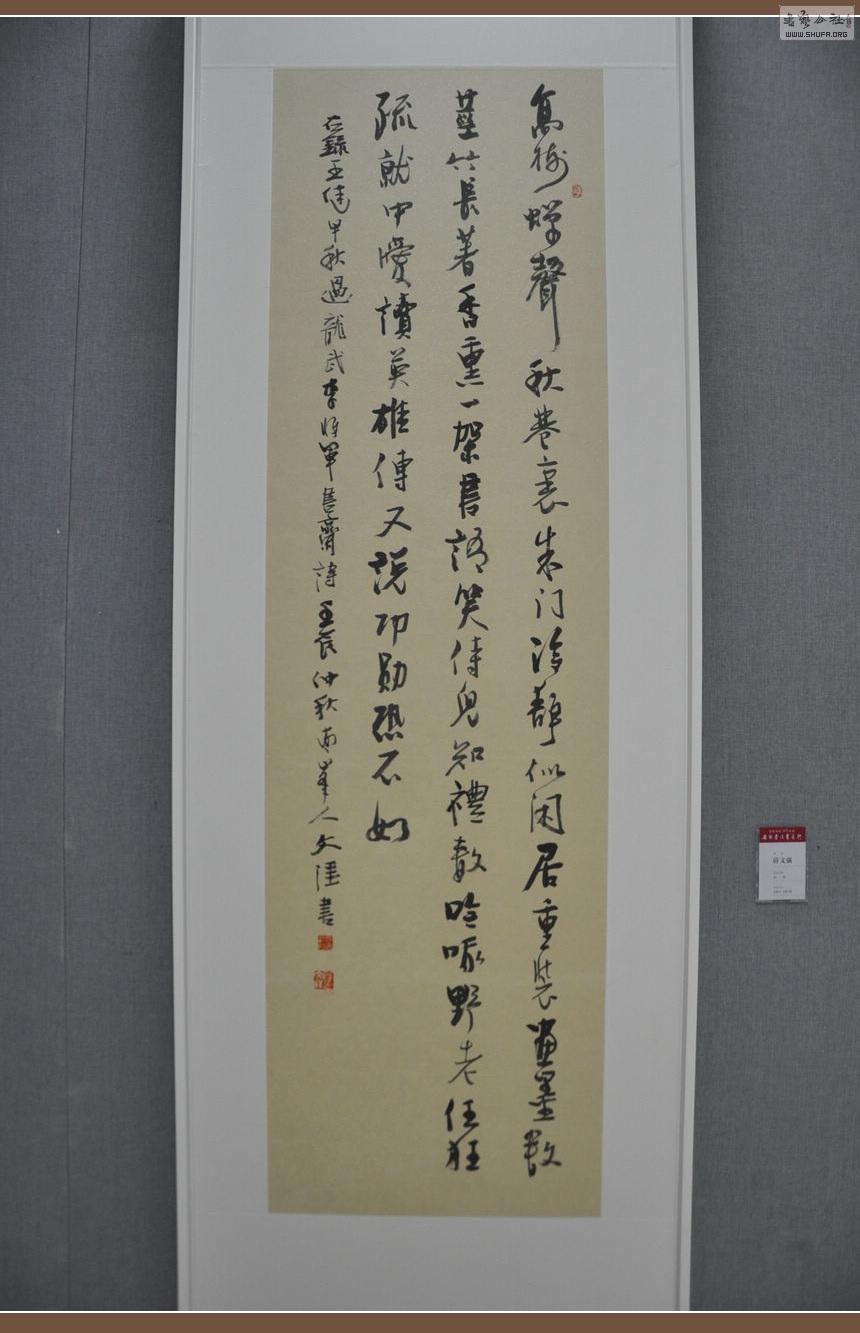 高樹蟬聲秋巷裏朱门冷靜似闲居重裝畫墨數
莖竹長著香熏一架書語笑侍兒知禮數吟哦野老任狂
疏就中愛讀英雄傳又說功勋恐不如
右錄王建早秋過龍武李將軍書齋詩壬辰仲秋南峯人文書
書藝公社
WWW.SHUFA.ORG